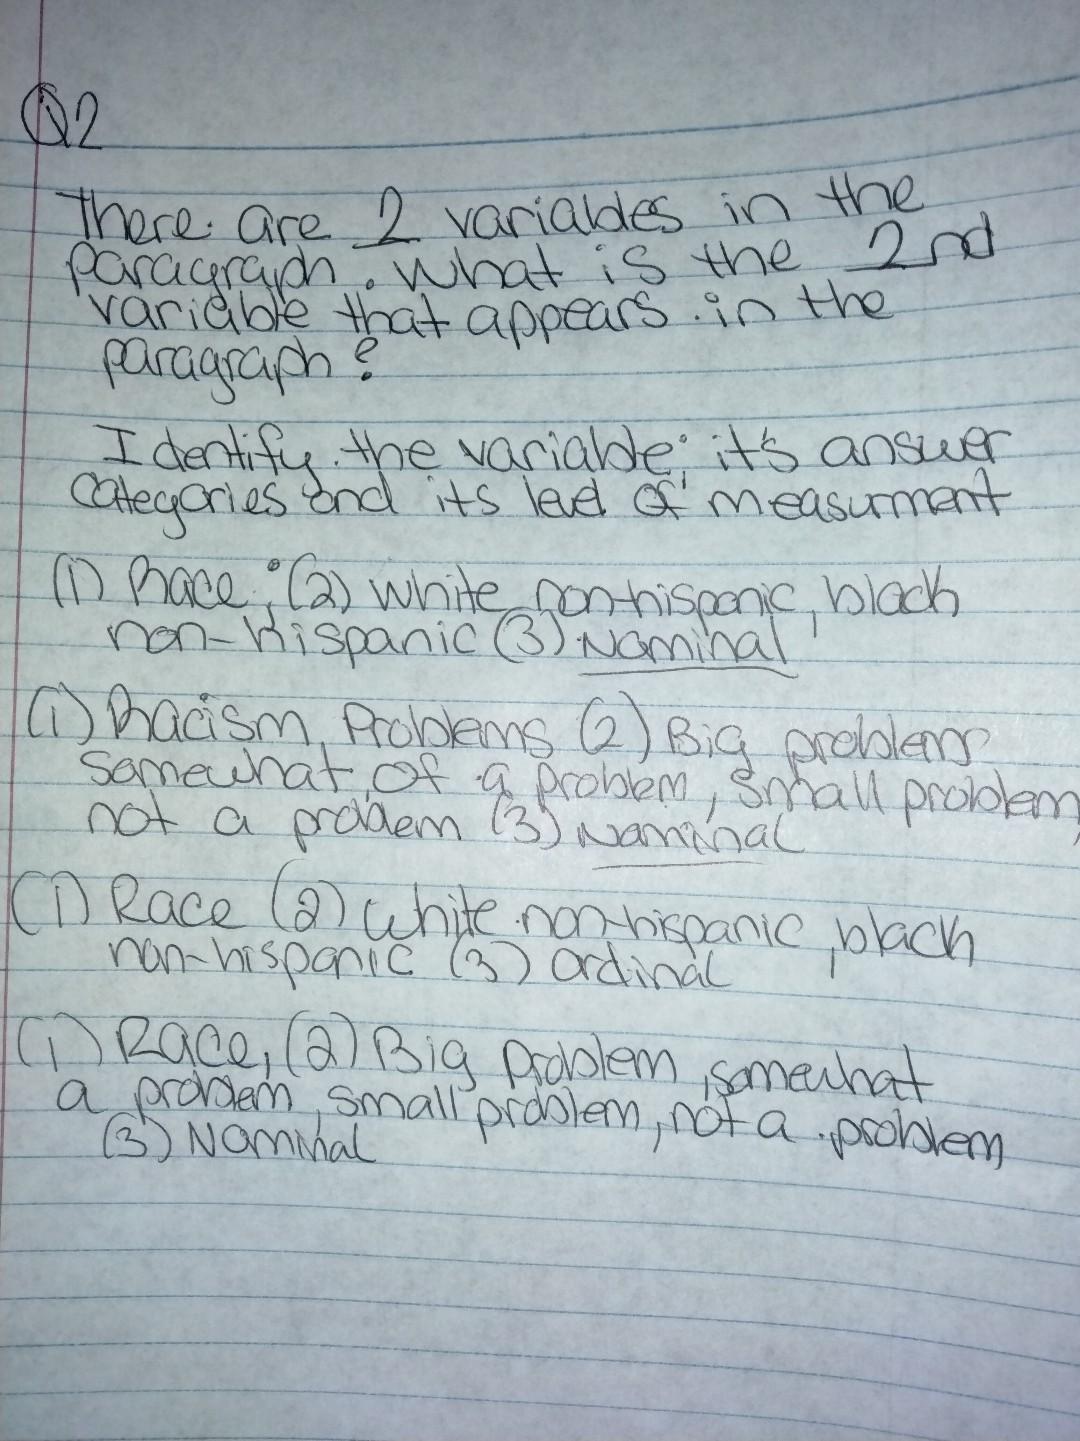 Q2
There are 2 variables in the
paragraph. What is the 2nd
variable that appears in the
paragraph?
Identify the variable; it's answer
categories and its level of measurment
(1) Race; (2) white non-hispanic, black
non-hispanic (3) Nominal
(1) Racism Problems (2) Big problems
Somewhat of a problem, small problem,
not a problem (3) Nominal
(1) Race (2) white non-hispanic, black
non-hispanic (3) ordinal
(1) Race, (2) Big problem, somewhat
a problem, small problem, not a problem
(3) Nominal